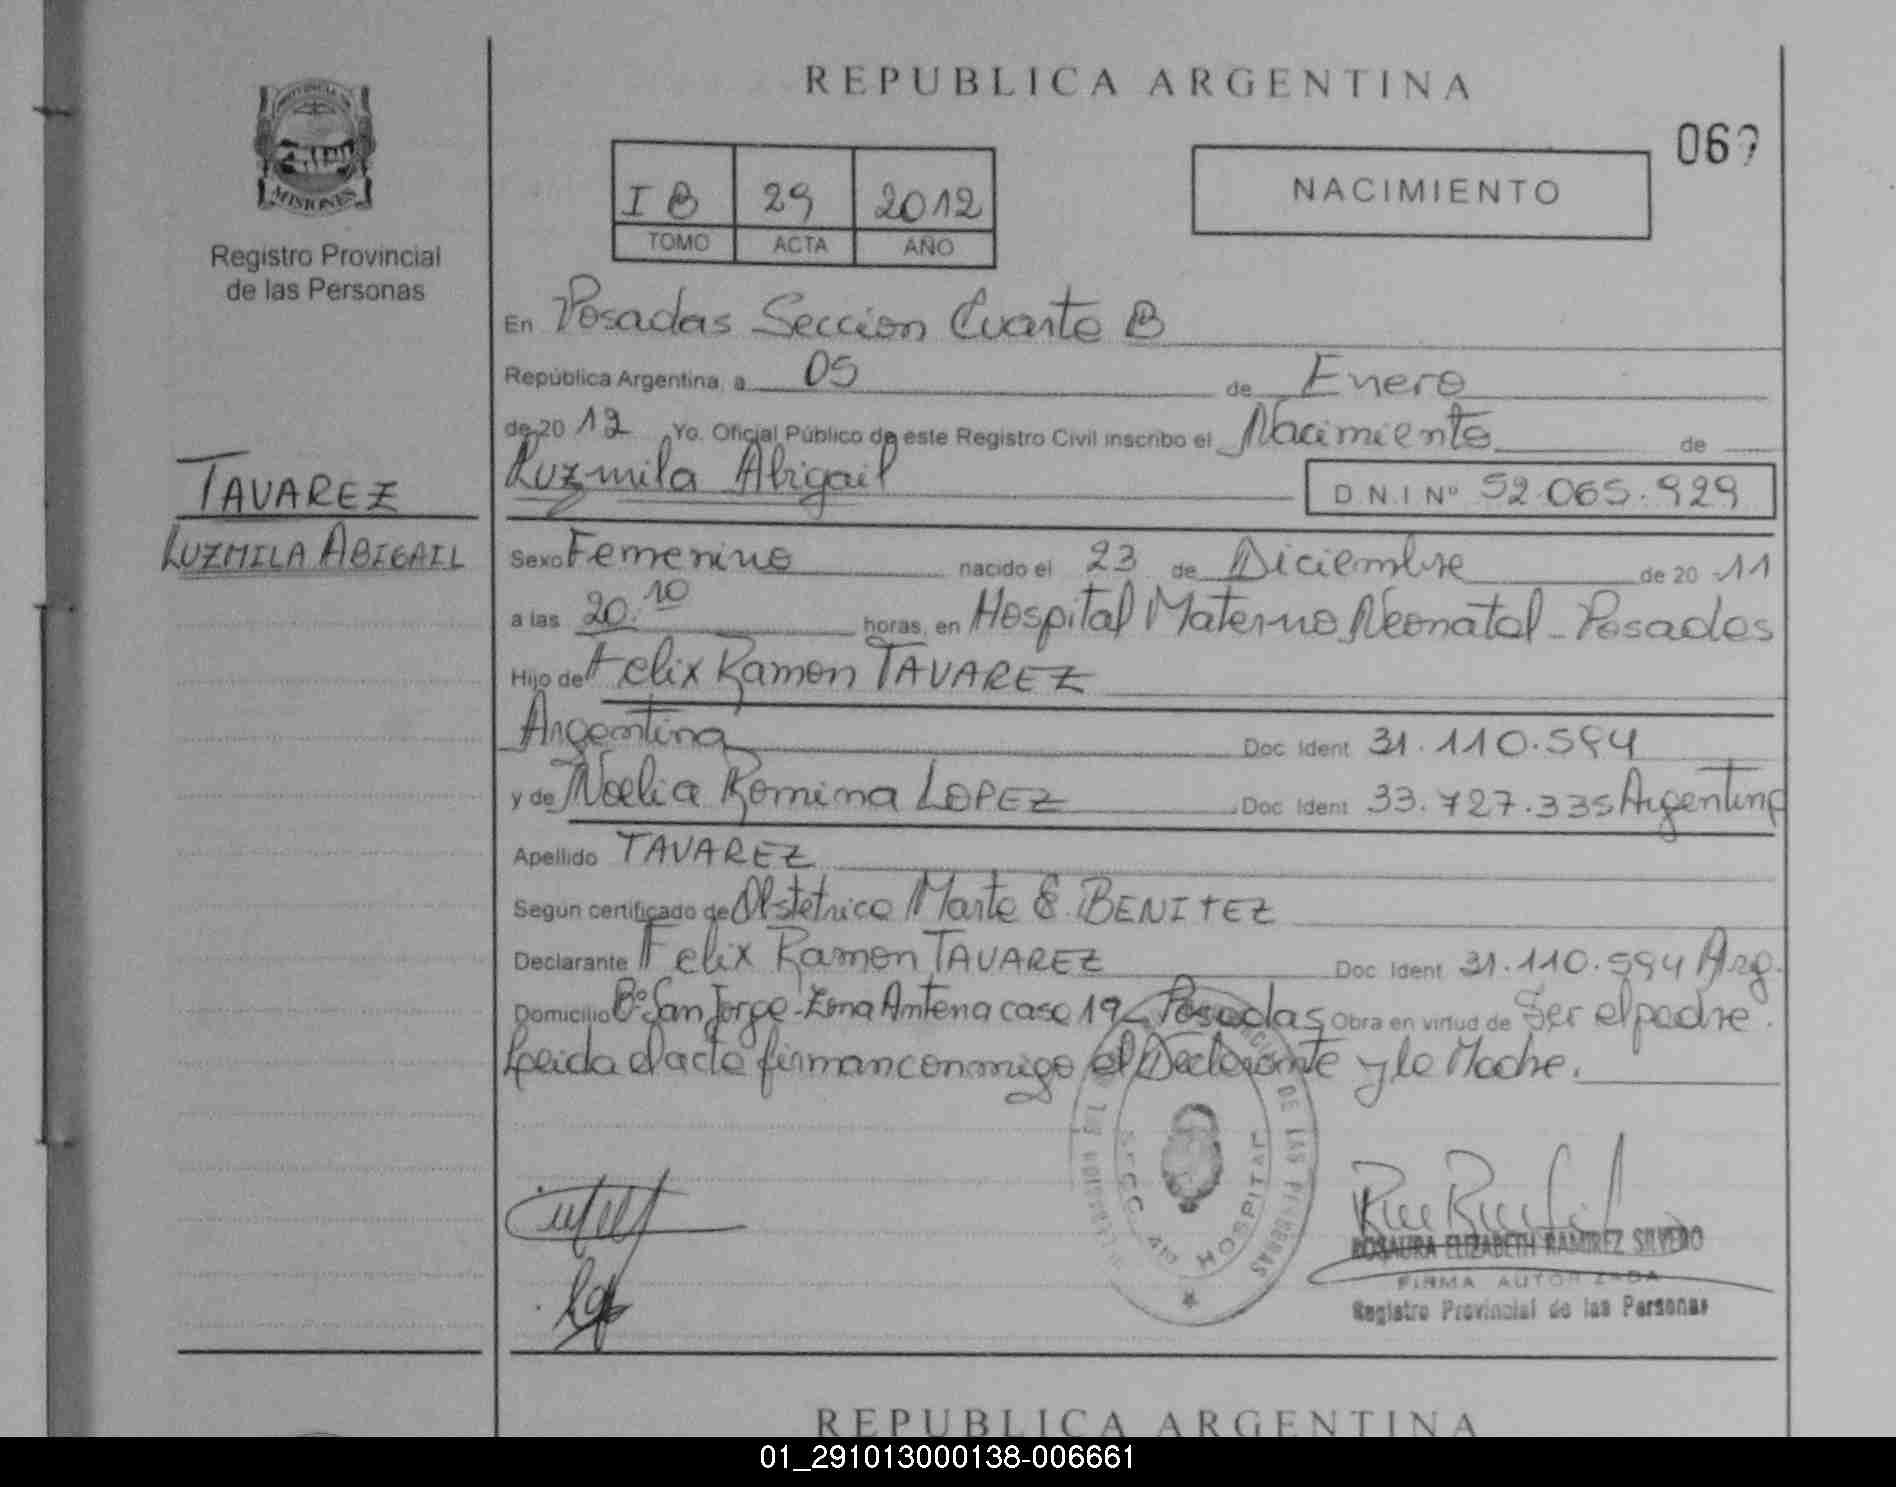 REPUBLICA ARGENTINA
MISIONES
Registro Provincial
de las Personas
I B 29 2012
TOMO ACTA AÑO
NACIMIENTO
TAVAREZ
LUZMILA ABIGAIL
En Posadas Seccion Cuarta B
República Argentina, a 05 de Enero
de 20 12 Yo. Oficial Público de este Registro Civil inscribo el Nacimiento de
Luzmila Abigail D.N.I Nº 52.065.929
Sexo Femenino nacido el 23 de Diciembre de 20 11
a las 20.10 horas, en Hospital Materno Neonatal - Posadas
Hijo de Felix Ramon TAVAREZ
Argentina Doc Ident 31.110.594
y de Noelia Romina LOPEZ Doc Ident 33.727.335 Argentina
Apellido TAVAREZ
Segun certificado de Obstetrica Marta E. BENITEZ
Declarante Felix Ramon TAVAREZ Doc Ident 31.110.594 Arg.
Domicilio Bº San Jorge - Zona Antena casa 19 - Posadas Obra en virtud de Ser el padre.
Leida el acta firman conmigo el Declarante y la Madre.
DE LAS PERSONAS
SECC. 4ta HOSPITAL
ROSAURA ELIZABETH RAMIREZ SILVERO
FIRMA AUTORIZADA
Registro Provincial de las Personas
REPUBLICA ARGENTINA
01_291013000138-006661